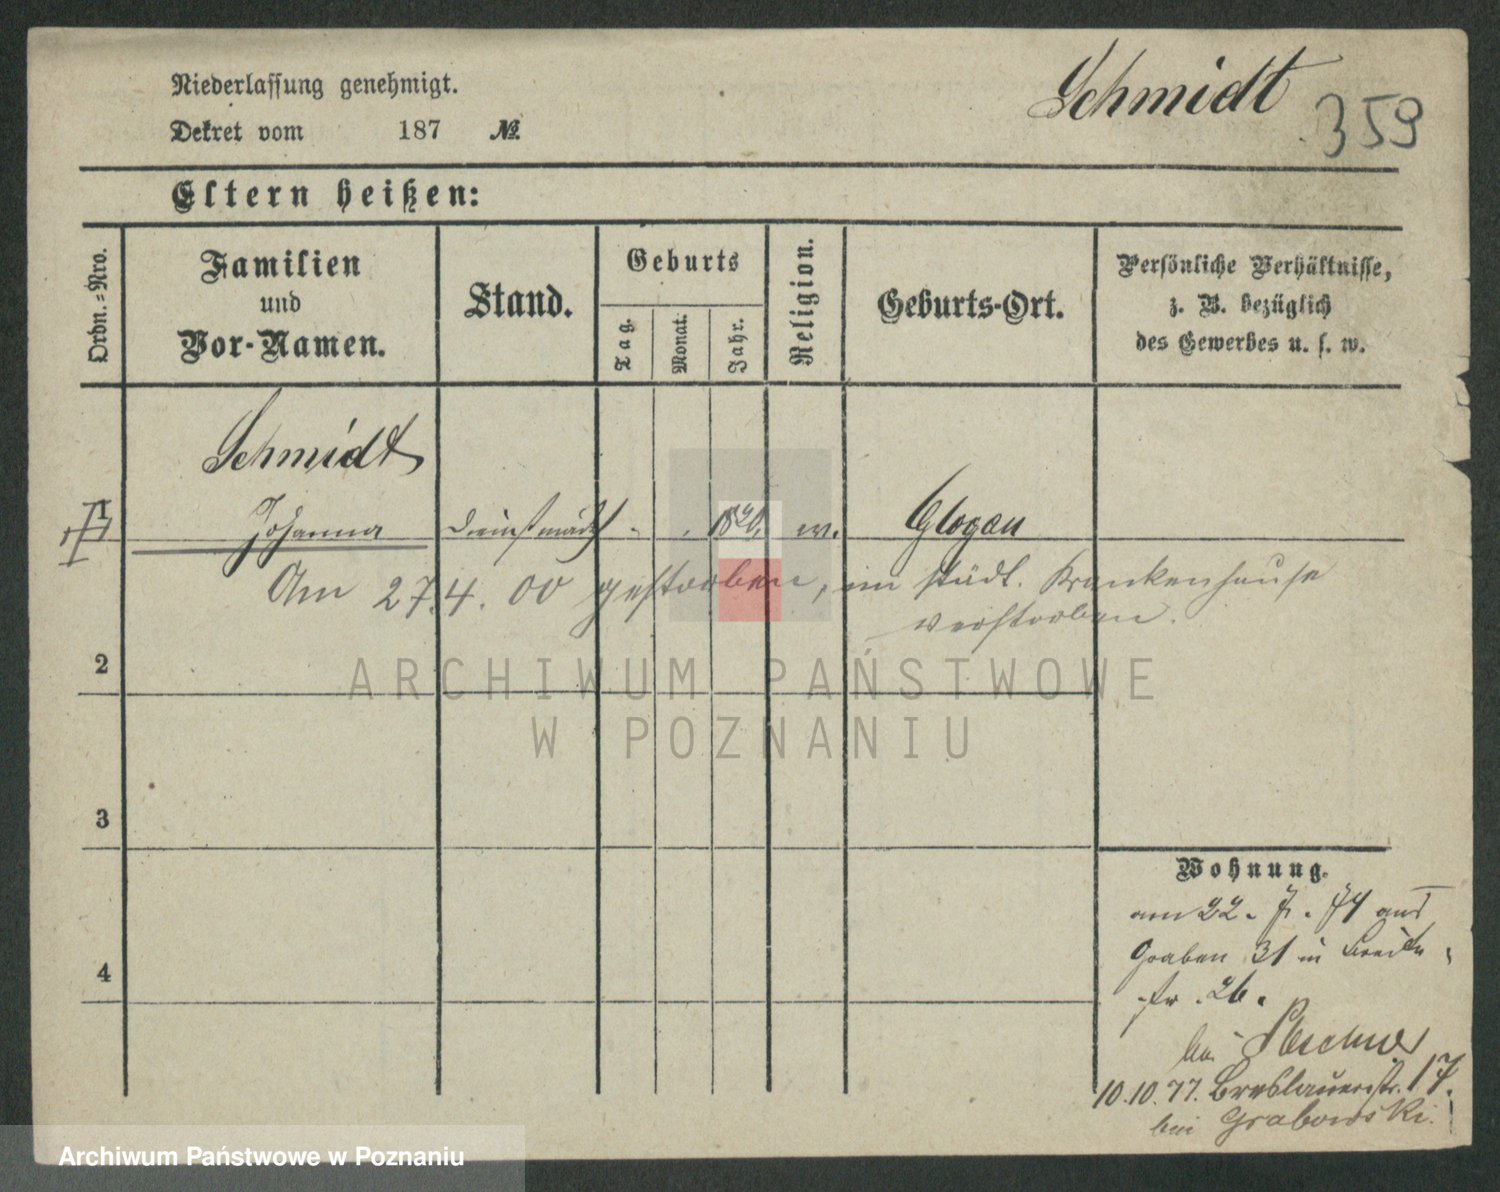 Niederlassung genehmigt.
Schmidt
359
Dekret vom 187 №
Eltern heißen:
Ordn.=Nro.
Familien
und
Vor-Namen.
Stand.
Geburts
Tag.
Monat.
Jahr.
Religion.
Geburts-Ort.
Persönliche Verhältnisse,
z. B. bezüglich
des Gewerbes u. s. w.
Schmidt
1 Johanna Dienstmädch 1820, w. Glogau
Am 27.4.00 gestorben, im städt. Krankenhause
verstorben.
2
ARCHIWUM PAŃSTWOWE
W POZNANIU
3
Wohnung.
am 22. 7. 74 aus
Graben 31 in Breite
str. 26.
4
bei
10.10.77. Breslauerstr. 17.
bei Grabowski.
Archiwum Państwowe w Poznaniu